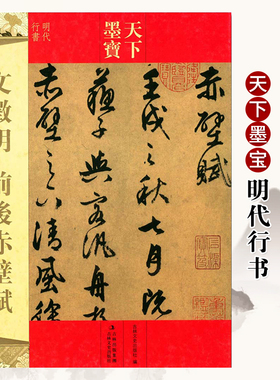 明代
行書
天下
墨寶
赤壁賦
壬戌之秋七月既
蘇子與客泛舟
赤壁之下清風徐
文徵明 前後赤壁賦
天下墨宝
明代行书